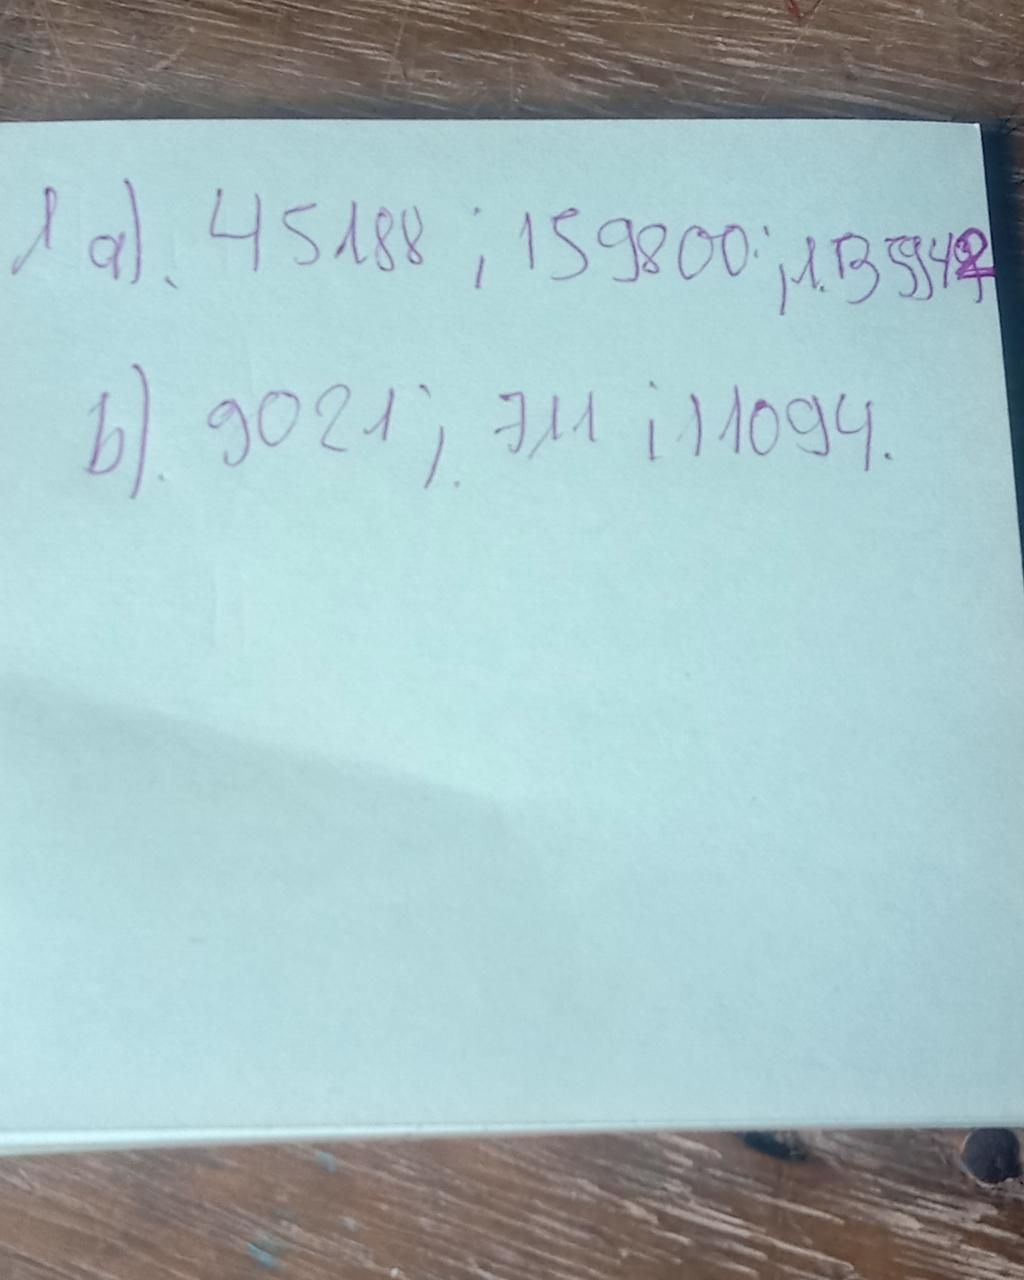 1 a). 45188 ; 159800 ; 1.135942
b). 9021 ; 711 ; 11094.